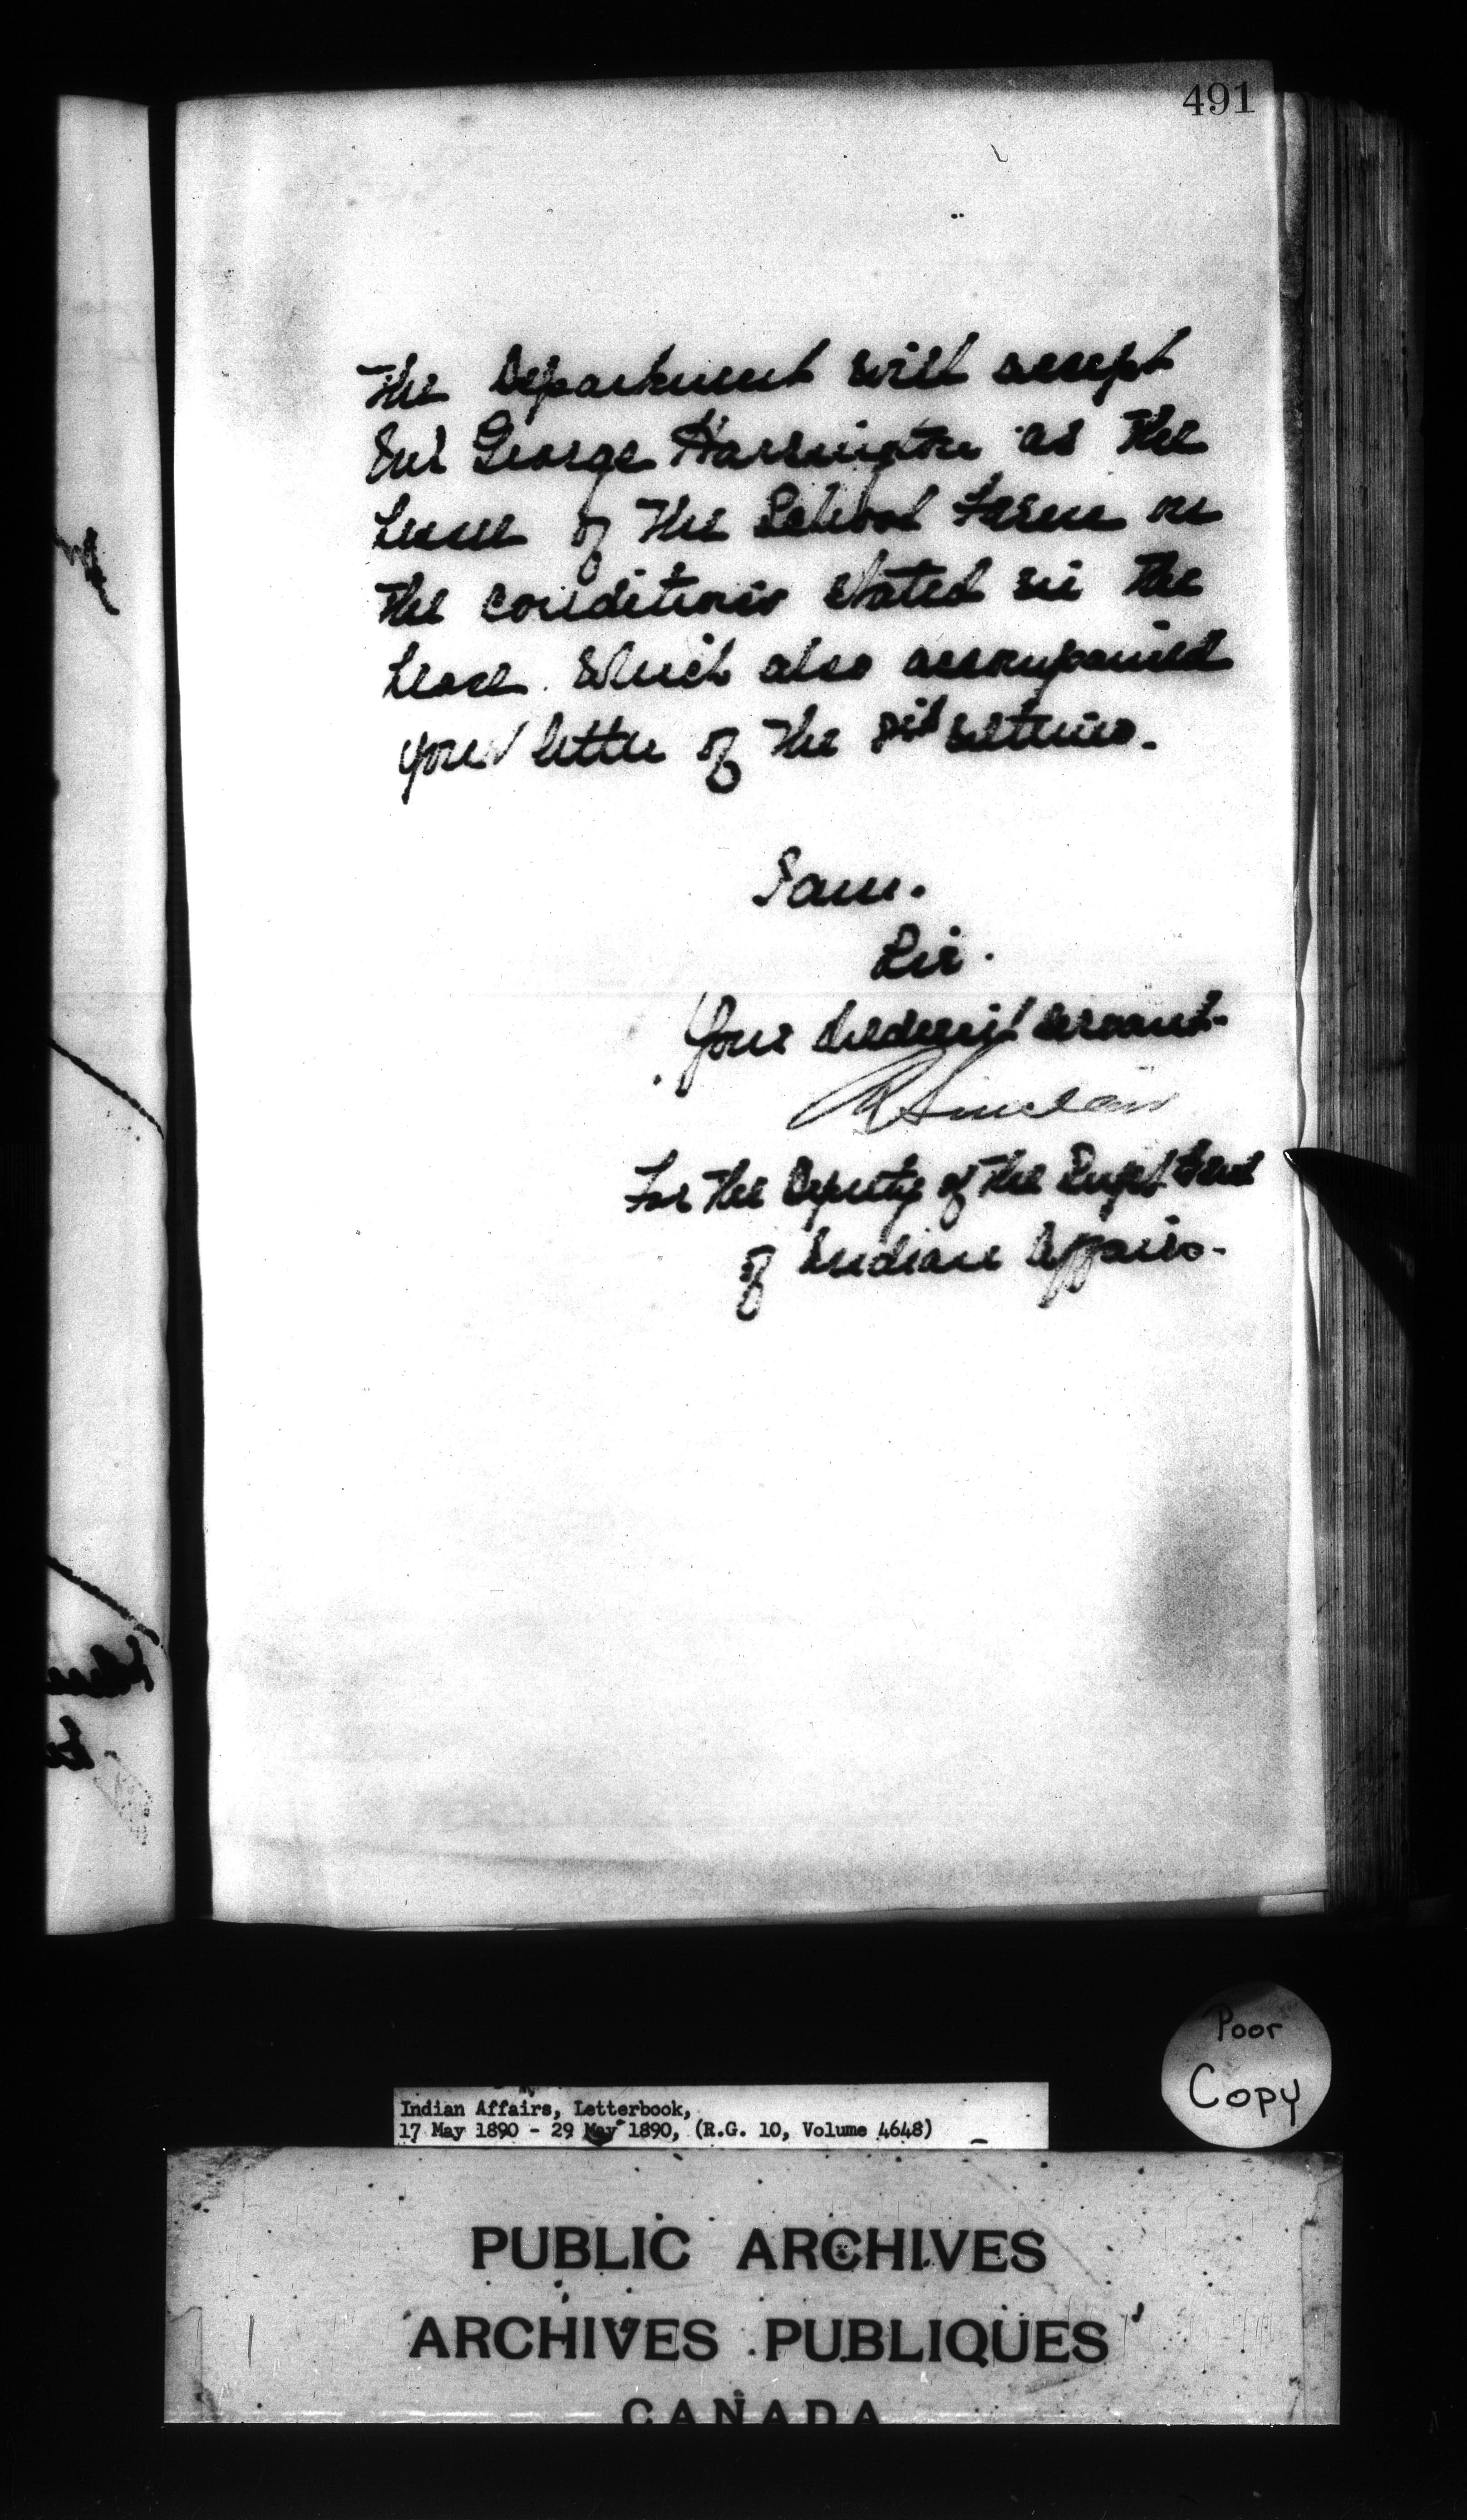 491
The Department will accept
Mr George Harrington as the
lessee of the School Farm on
the conditions stated in the
lease which also accompanied
your letter of the ultimo.
I am.
Sir.
Your obedient servant.
R Sinclair
For the Deputy of the Supt Genl
of Indian Affairs.
Poor
Copy
Indian Affairs, Letterbook,
17 May 1890 - 29 May 1890, (R.G. 10, Volume 4648)
PUBLIC ARCHIVES
ARCHIVES PUBLIQUES
CANADA